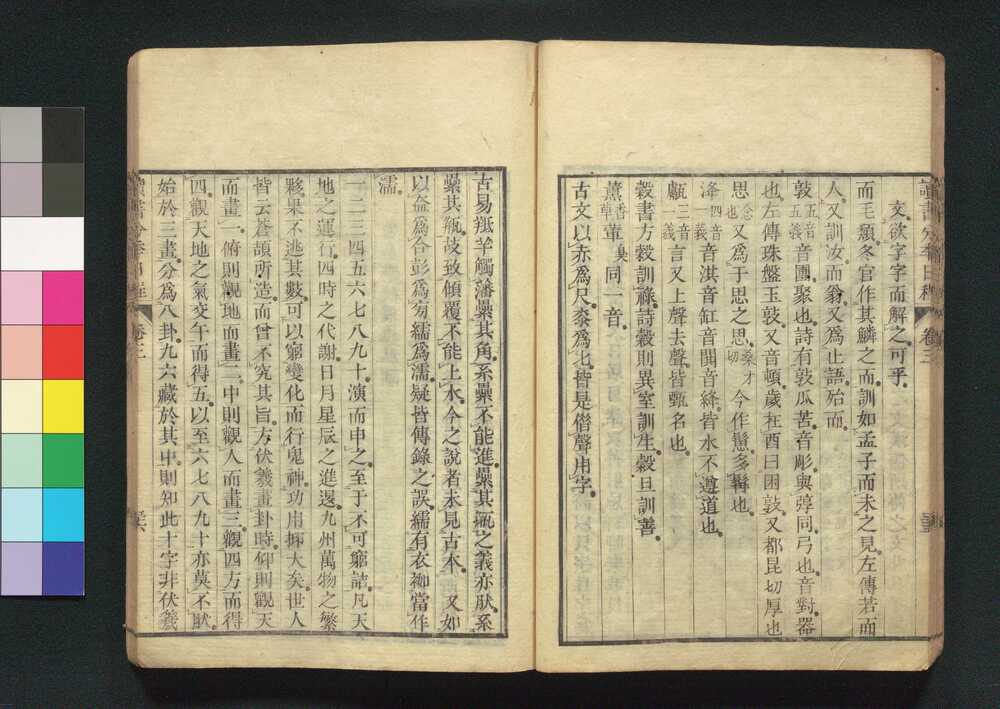 文欲字字而解之可乎
而毛頪冬官作其鱗之而訓如孟子而未之見左傳若而
人又訓汝而翁又爲止語殆而
敦五音五義音團聚也詩有敦瓜苦音彫與弴同弓也音對器
也左傳珠盤玉敦又音頓歲在酉曰困敦又都昆切厚也
思念也又爲于思之思桑才切今作鬚多鬍也
洚四音一義音淇音缸音閧音絳皆水不遵道也
甗二音一義言又上聲去聲皆甑名也
穀書方穀訓祿詩穀則異室訓生穀旦訓善
薰香草葷臭同一音
古文以赤爲尺桼爲七皆是借聲用字
古易羝羊觸藩纍其角系纍不能進纍其瓶之義亦肰系
纍其瓶故致傾覆不能上水今之說者未見古本又如
以盍爲合彭爲旁繻爲濡疑皆傳錄之誤繻有衣袽當作
濡
一二三四五六七八九十演而申之至于不可窮詰凡天
地之運行四時之代謝日月星辰之進退九州萬物之繁
夥果不逃其數可以窮變化而行鬼神功用抑大矣世人
皆云蒼頡所造而曾不究其旨方伏羲畫卦時仰則觀天
而畫一俯則觀地而畫二中則觀人而畫三觀四方而得
四觀天地之氣交午而得五以至六七八九十亦莫不肰
始於三畫分爲八卦九六藏於其中則知此十字非伏羲
卷三
卷三